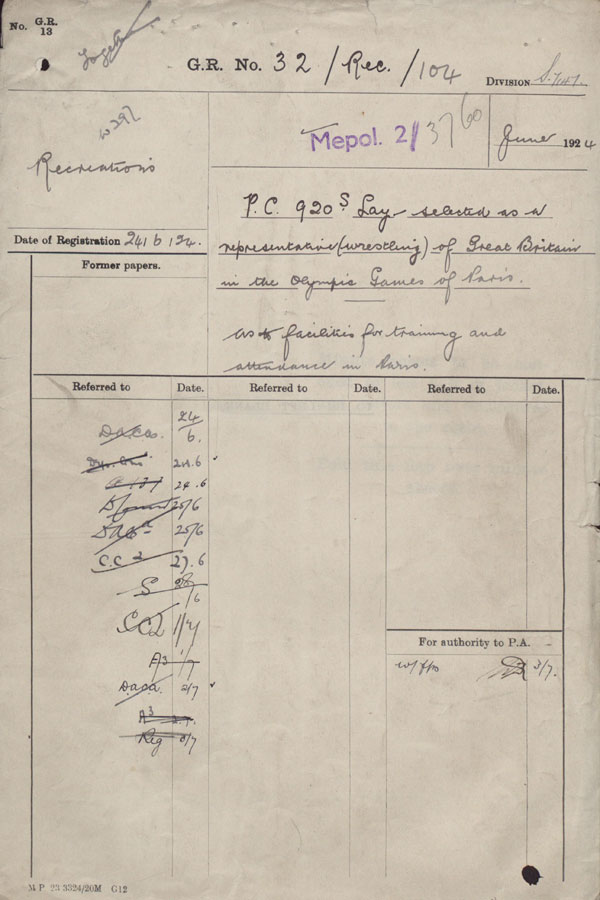 No. G.R. 13
G.R. No. 32 / Rec. / 104
DIVISION
Mepol. 2/ 3760
June 1924
Recreations
Date of Registration 24/6/24.
P.C. 920 S Lay selected as a
representative (wrestling) of Great Britain
in the Olympic Games of Paris.
As to facilities for training and
attendance in Paris.
Former papers.
Referred to Date. Referred to Date. Referred to Date.
24/6.
24.6
24.6
25/6
25/6
C.C 2 27.6
S 28/6
CC2 1/7
A3 1/7
2/7
A3
Reg 3/7
For authority to P.A.
3/7.
M P 23 3324/20M G12